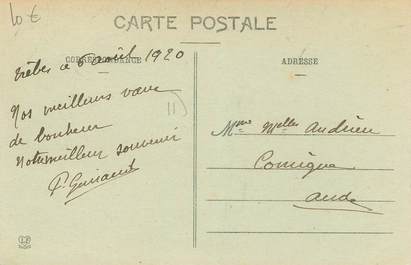 10 €
CARTE POSTALE
CORRESPONDANCE
ADRESSE
Trèbes le 6 avril 1920
Nos meilleurs vœux
de bonheur
Notre meilleur souvenir
Mme Melles Andrieu
Comigne
Aude